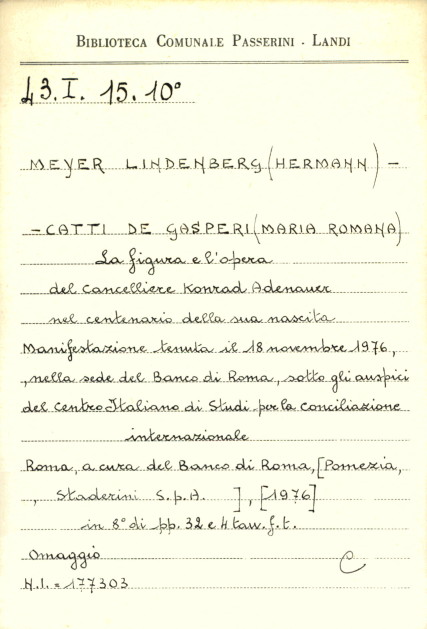 BIBLIOTECA COMUNALE PASSERINI - LANDI
43.I. 15.10°
MEYER LINDENBERG (HERMANN) -
- CATTI DE GASPERI (MARIA ROMANA)
La figura e l'opera
del Cancelliere Konrad Adenauer
nel centenario della sua nascita
Manifestazione tenuta il 18 novembre 1976,
, nella sede del Banco di Roma, sotto gli auspici
del Centro Italiano di Studi per la Conciliazione
internazionale
Roma, a cura del Banco di Roma, [Pomezia,
, Staderini S.p.A. ], [1976]
in 8° di pp. 32 e 4 tav. f.t.
Omaggio C
N.I. = 177303